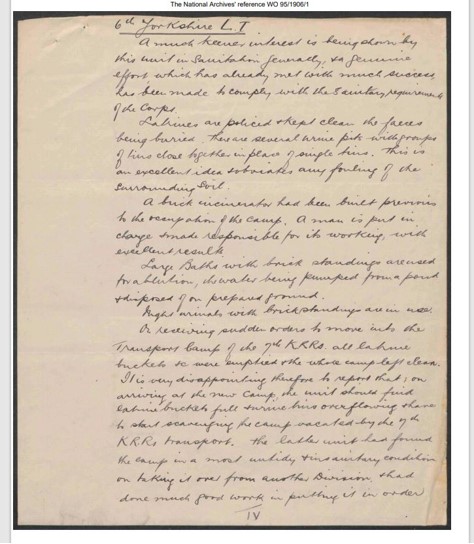 The National Archives' reference WO 95/1906/1
6th Yorkshire L.I
A much keener interest is being shown by
this unit in Sanitation generally, & a genuine
effort which has already met with much success
has been made to comply with the Sanitary requirements
of the Corps.
Latrines are policed & kept clean the faeces
being buried. There are several urine pits with groups
of tins close together in place of single tins. This is
an excellent idea & obviates any fouling of the
surrounding soil.
A brick incinerator had been built previous
to the occupation of the camp. A man is put in
charge & made responsible for its working, with
excellent results
Large Baths with brick standings are used
for ablution, the water being pumped from a pond
& disposed of on prepared ground.
Night urinals with brick standings are in use.
On receiving sudden orders to move into the
Transport Camp of the 7th KRRs all latrine
buckets &c were emptied & the whole camp left clean.
It is very disappointing therefore to report that, on
arriving at the new Camp, the unit should find
latrine buckets full & urine tins overflowing & have
to start scavenging the camp vacated by the 7th
KRRs transport. The latter unit had found
the camp in a most untidy & insanitary condition
on taking it over from another Division, & had
done much good work in putting it in order
IV